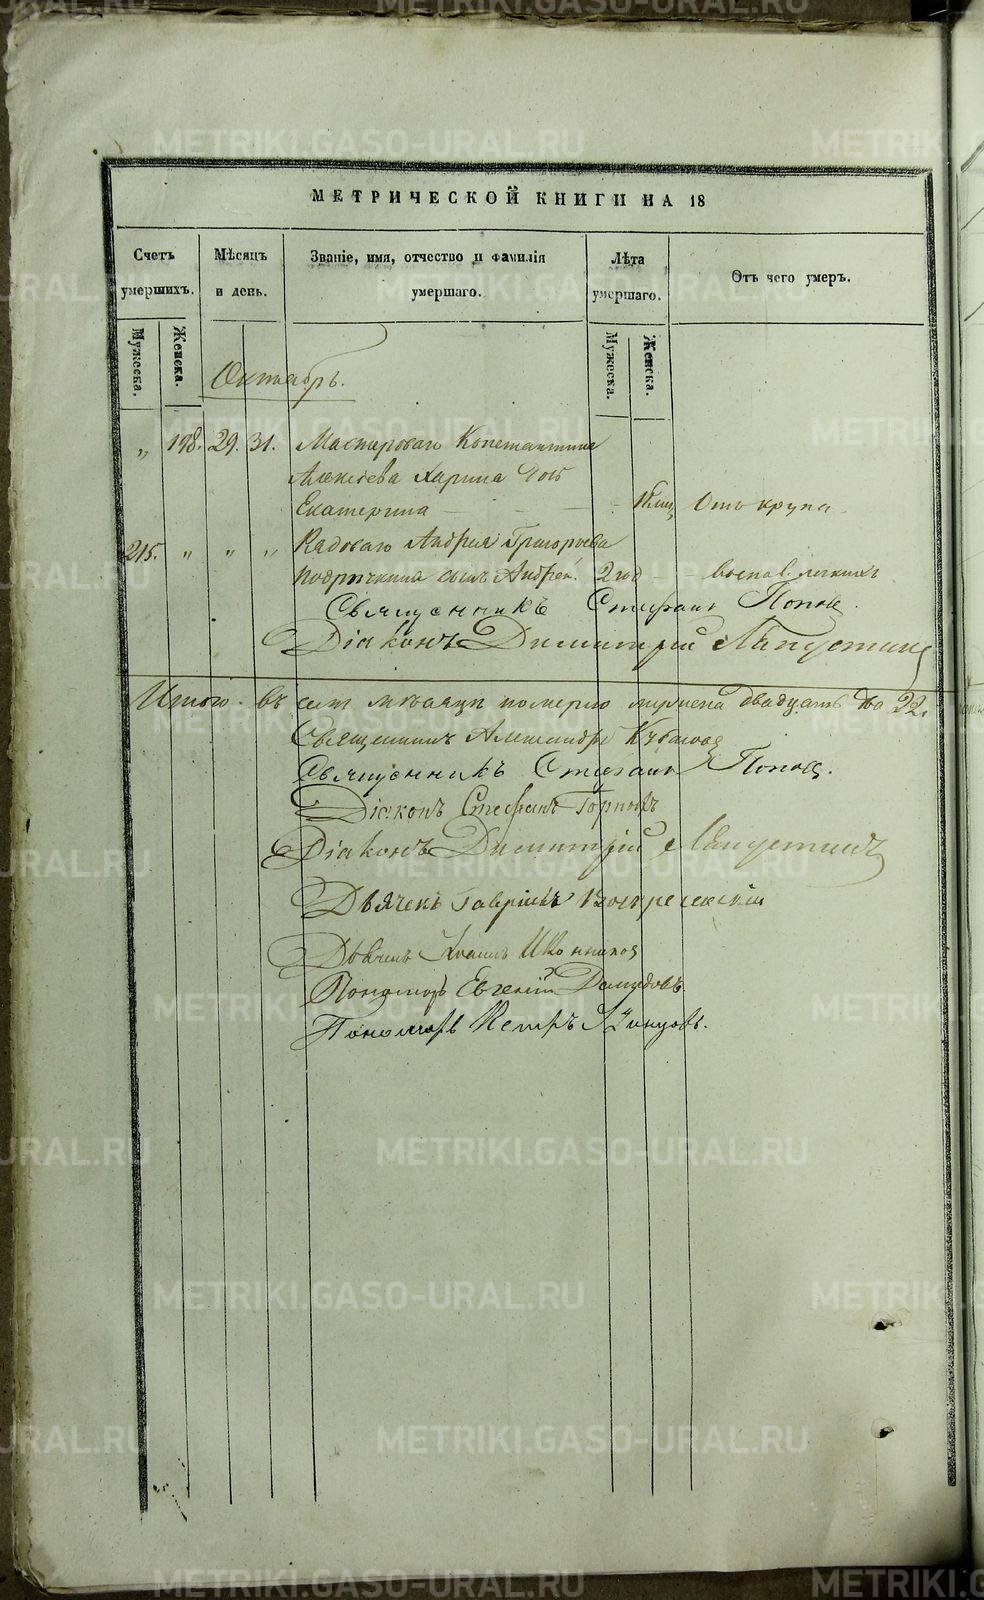 МЕТРИЧЕСКОЙ КНИГИ НА 18
Счетъ умершихъ.
Мѣсяцъ и день.
Званіе, имя, отчество и фамилія умершаго.
Лѣта умершаго.
Отъ чего умеръ.
Мужеска.
Женска.
Мужеска.
Женска.
Октябрь.
„ 198. 29. 31. Мастероваго Константина
Алексѣева Ларина дочь
Екатерина Отъ крупа
215. „ „ „ Рядоваго Андрея Григорьева
сынъ Андрей. 2 год воспал. легкихъ
Священникъ Стефанъ Поповъ.
Діаконъ Димитрій
Итого въ семъ мѣсяцѣ померло мужеска двадцать два 22.
Священникъ Александръ
Священникъ Стефанъ Поповъ.
Діаконъ Стефанъ Горныхъ
Діаконъ Димитрій
Дьячекъ Гавріилъ Воскресенскій
Дьячекъ Иконниковъ
Пономарь Евгеній Демидовъ
Пономарь Петръ
METRIKI.GASO-URAL.RU